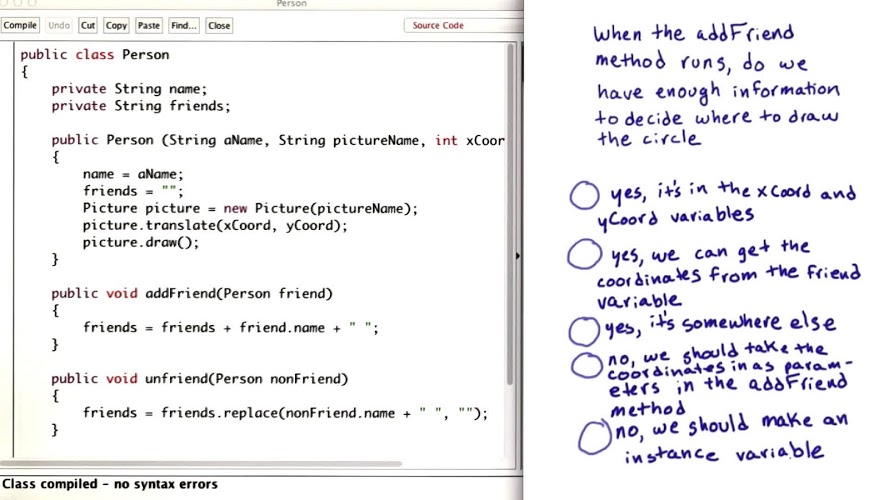 Person
Compile Undo Cut Copy Paste Find... Close Source Code
public class Person
{
private String name;
private String friends;
public Person (String aName, String pictureName, int xCoor
{
name = aName;
friends = "";
Picture picture = new Picture(pictureName);
picture.translate(xCoord, yCoord);
picture.draw();
}
public void addFriend(Person friend)
{
friends = friends + friend.name + " ";
}
public void unfriend(Person nonFriend)
{
friends = friends.replace(nonFriend.name + " ", "");
}
Class compiled - no syntax errors
When the addFriend
method runs, do we
have enough information
to decide where to draw
the circle
yes, it's in the xCoord and
yCoord variables
yes, we can get the
coordinates from the friend
variable
yes, it's somewhere else
no, we should take the
coordinates in as param-
eters in the addFriend
method
no, we should make an
instance variable